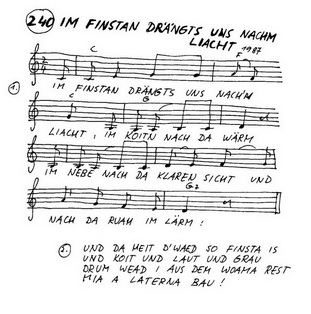 240 IM FINSTAN DRÄNGTS UNS NACHM
LIACHT 1987
C F
1.
IM FINSTAN DRÄNGTS UNS NACH'M
C G
LIACHT, IM KOITN NACH DA WÄRM
IM NEBE NACH DA KLAREN SICHT UND
G7
NACH DA RUAH IM LÄRM!
2. UND DA HEIT D'WAED SO FINSTA IS
UND KOIT UND LAUT UND GRAU
DRUM WEAD I AUS DEM WOAMA REST
MIA A LATERNA BAU!